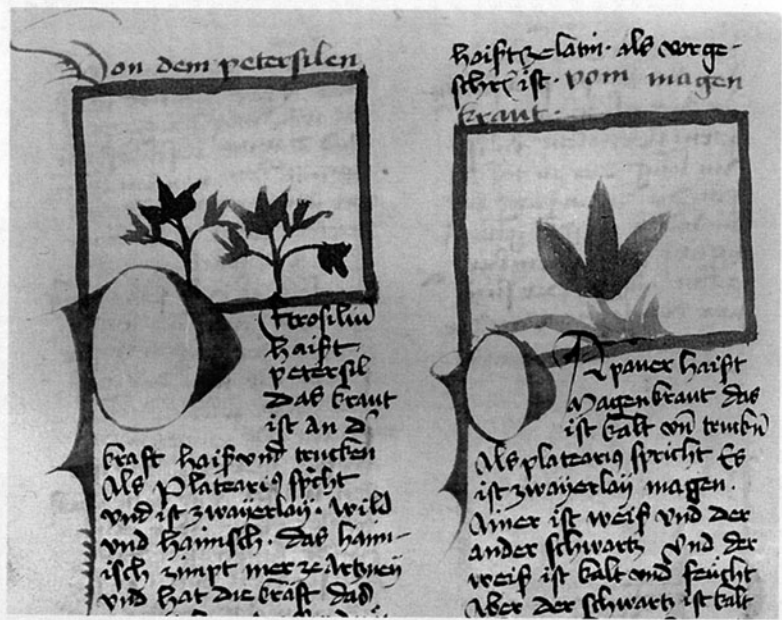 Von dem petersilen
Petrosiliu
haist
petersil
das kraut
ist an d̄
kraft haiß vnd trucken
Als Platearius sp̄cht
vnd ist zwayerlay. wild
vnd haimisch. das haim-
isch zimpt mer ze artzney
vnd hat die kraft das
haist ze latin. als vorge-
schrē ist. vom magen
kraut.
Papauer haist
Magenkraut das
ist kalt vn̄ truckn̄
Als platearius spricht Es
ist zwayerlay magen.
Ainer ist weiß vnd der
ander schwartz Vnd der
weiß ist kalt vnd feücht
Aber der schwartz ist kalt